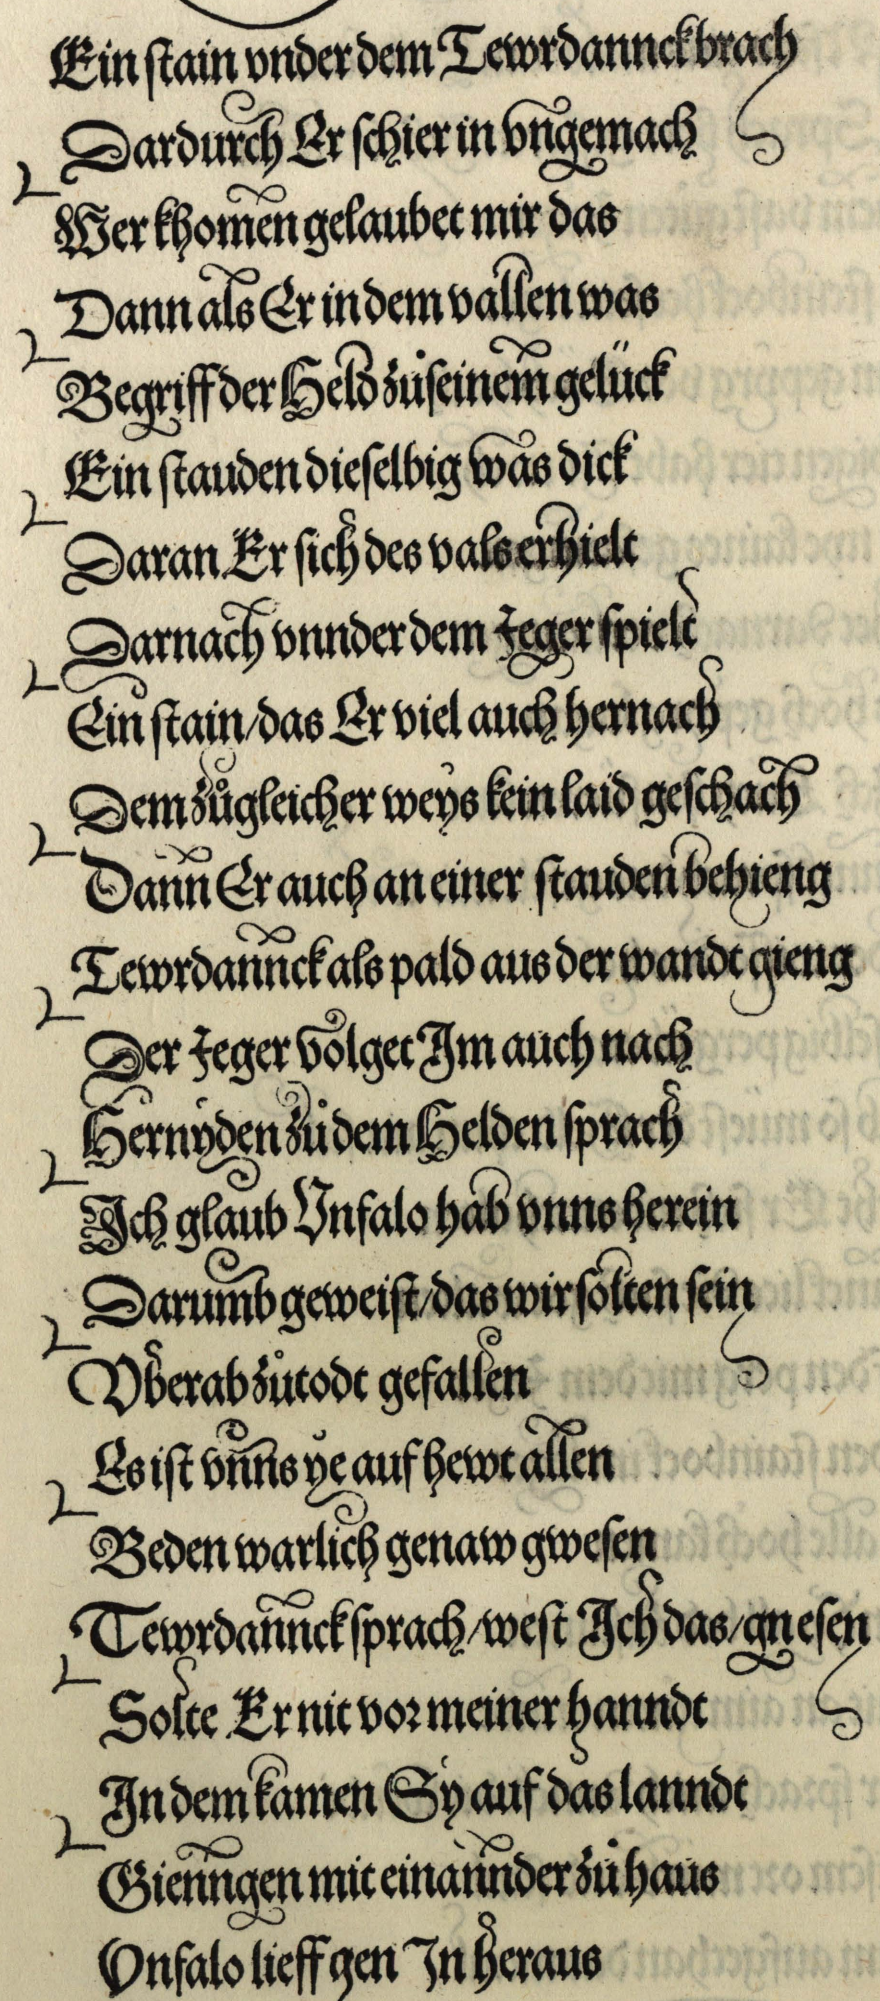 Ein stain vnder dem Tewrdannck brach
Dardurch Er schier in vngemach
Wer khomen gelaubet mir das
Dann als Er in dem vallen was
Begriff der Held zů seinem gelück
Ein stauden dieselbig was dick
Daran Er sich des vals erhielt
Darnach vnnder dem Jeger spielt
Ein stain/das Er viel auch hernach
Dem zůgleicher weys kein laid geschach
Dann Er auch an einer stauden behieng
Tewrdannck als pald aus der wandt gieng
Der Jeger volget Im auch nach
Hernyden zů dem Helden sprach
Ich glaub Vnfalo hab vnns herein
Darumb geweist/das wir solten sein
Vberab zů todt gefallen
Es ist vnns ye auf hewt allen
Beden warlich genaw gwesen
Tewrdannck sprach/west Ich das/gnesen
Solte Er nit vor meiner hanndt
In dem kamen Sy auf das lanndt
Gienngen mit einannder zů haus
Vnfalo lieff gen In heraus